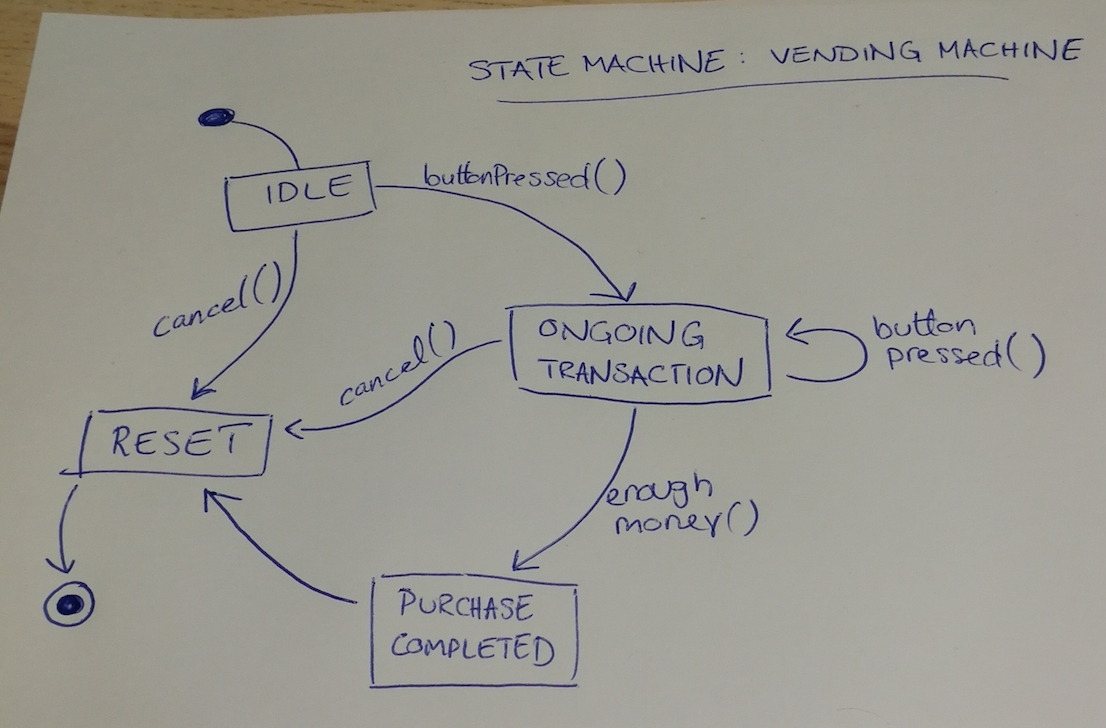 STATE MACHINE: VENDING MACHINE
IDLE
buttonPressed()
cancel()
ONGOING
TRANSACTION
button
pressed()
cancel()
RESET
enough
money()
PURCHASE
COMPLETED